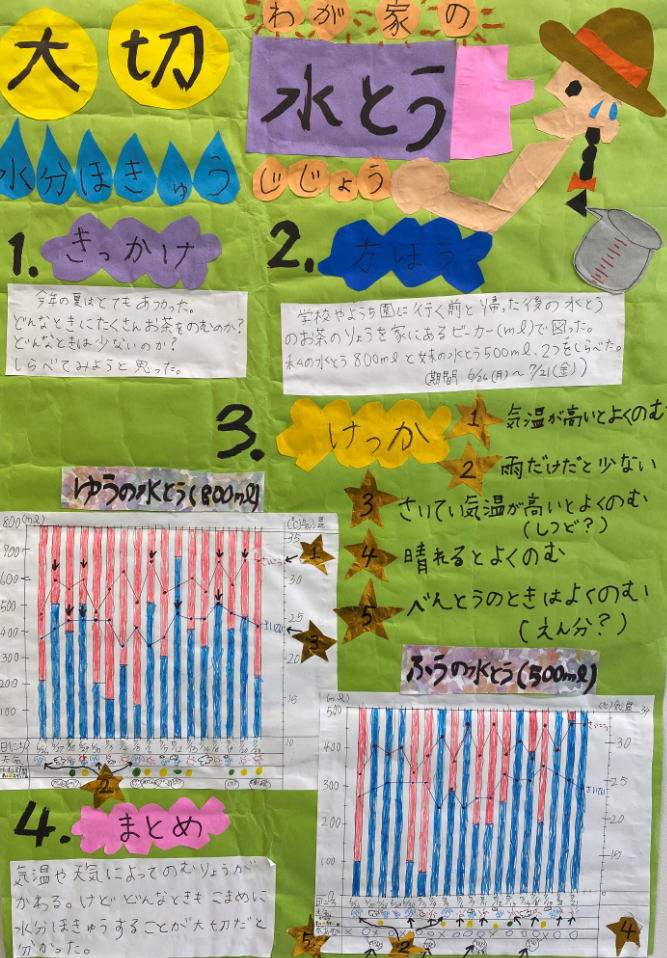 大切
わが家の
水とう
水分ほきゅう
じじょう
1. きっかけ
今年の夏はとてもあつかった。
どんなときにたくさんお茶をのむのか?
どんなときは少ないのか?
しらべてみようと思った。
2. 方ほう
学校やようち園に行く前と帰った後の水とう
のお茶のりょうを家にあるビーカー(ml)で図った。
私の水とう800mlと妹の水とう500ml、2つをしらべた。
(期間 6/26(月)〜7/21(金))
3. けっか
1 気温が高いとよくのむ
2 雨だけだと少ない
3 さいてい気温が高いとよくのむ
(しつど?)
4 晴れるとよくのむ
5 べんとうのときはよくのむ
(えん分?)
ゆうの水とう(800ml)
800(ml)
(℃)気温
700
600
500
400
300
200
100
35
30
25
20
15
10
さいこう
さいてい
1
3
日にち
天気
2
ふうの水とう(500ml)
(ml)
(℃)気温
500
400
300
200
100
0
30
25
20
15
さいこう
さいてい
5
2
4
4. まとめ
気温や天気によってのむりょうが
かわる。けどどんなときもこまめに
水分ほきゅうすることが大切だと
分かった。